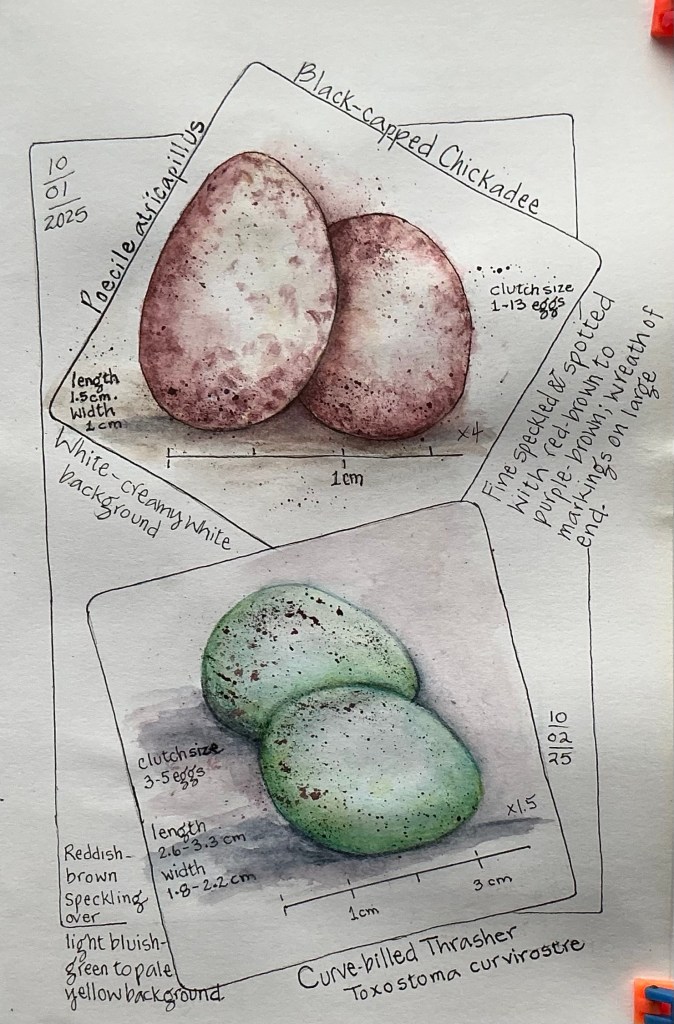 10
01
2025
Poecile atricapillus
Black-capped Chickadee
clutch size
1-13 eggs
length
1.5cm.
width
1cm
x4
1cm
White-creamy white
background
Fine speckled & spotted
with red-brown to
purple-brown; wreath of
markings on large
end.
10
02
25
clutch size
3-5 eggs
length
2.6-3.3 cm
width
1.8-2.2 cm
x1.5
1cm
3cm
Reddish-
brown
speckling
over
light bluish-
green to pale
yellow background
Curve-billed Thrasher
Toxostoma curvirostre